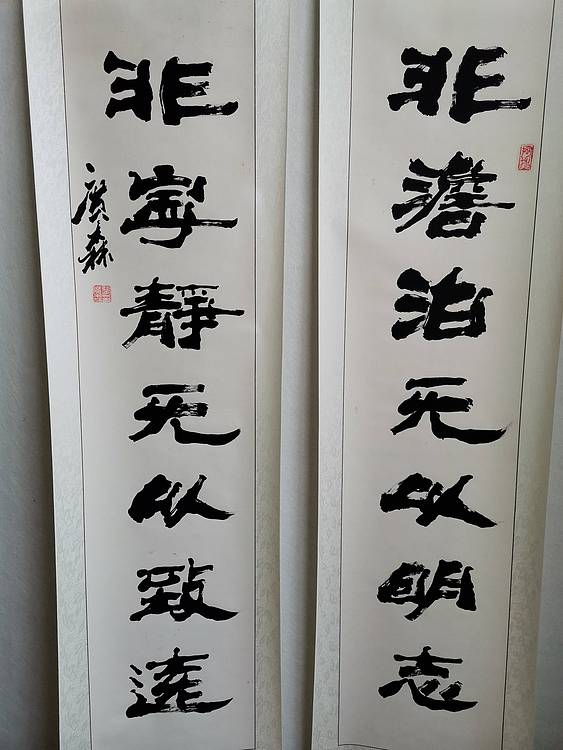 非澹泊无以明志
非寧靜无以致遠
廣森